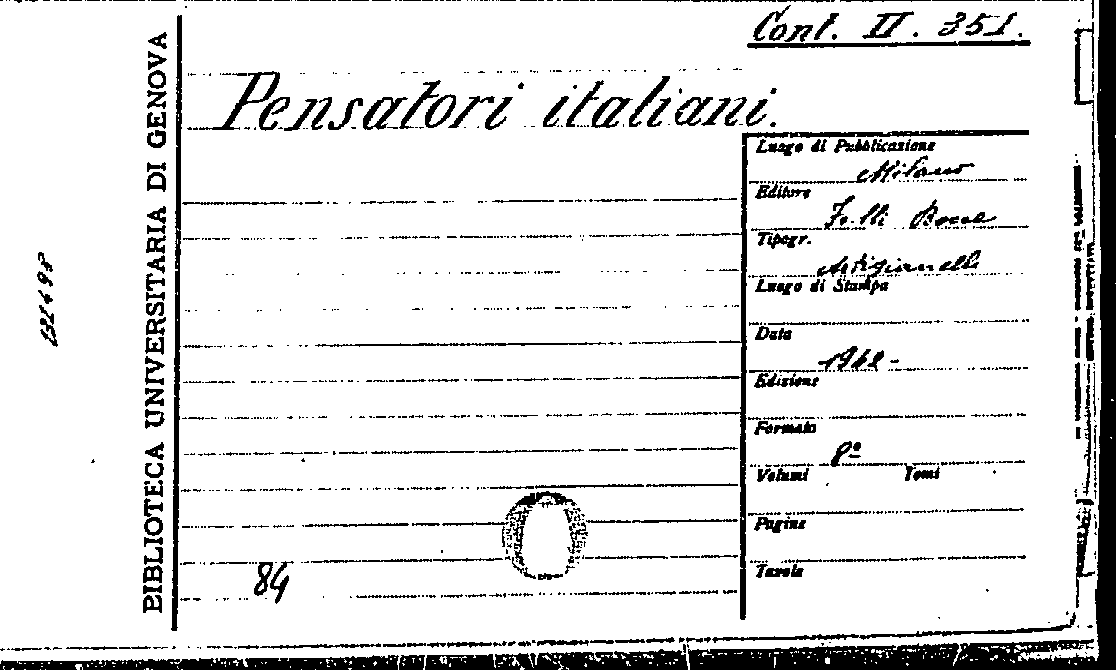 Cont. II. 351.
Pensatori italiani.
BIBLIOTECA UNIVERSITARIA DI GENOVA
Luogo di Pubblicazione
Milano
Editore
F.lli Bocca
Tipogr.
Artigianelli
Luogo di Stampa
Data
1942 -
Edizione
Formato
8º
Volumi Tomi
Pagine
Tavole
84